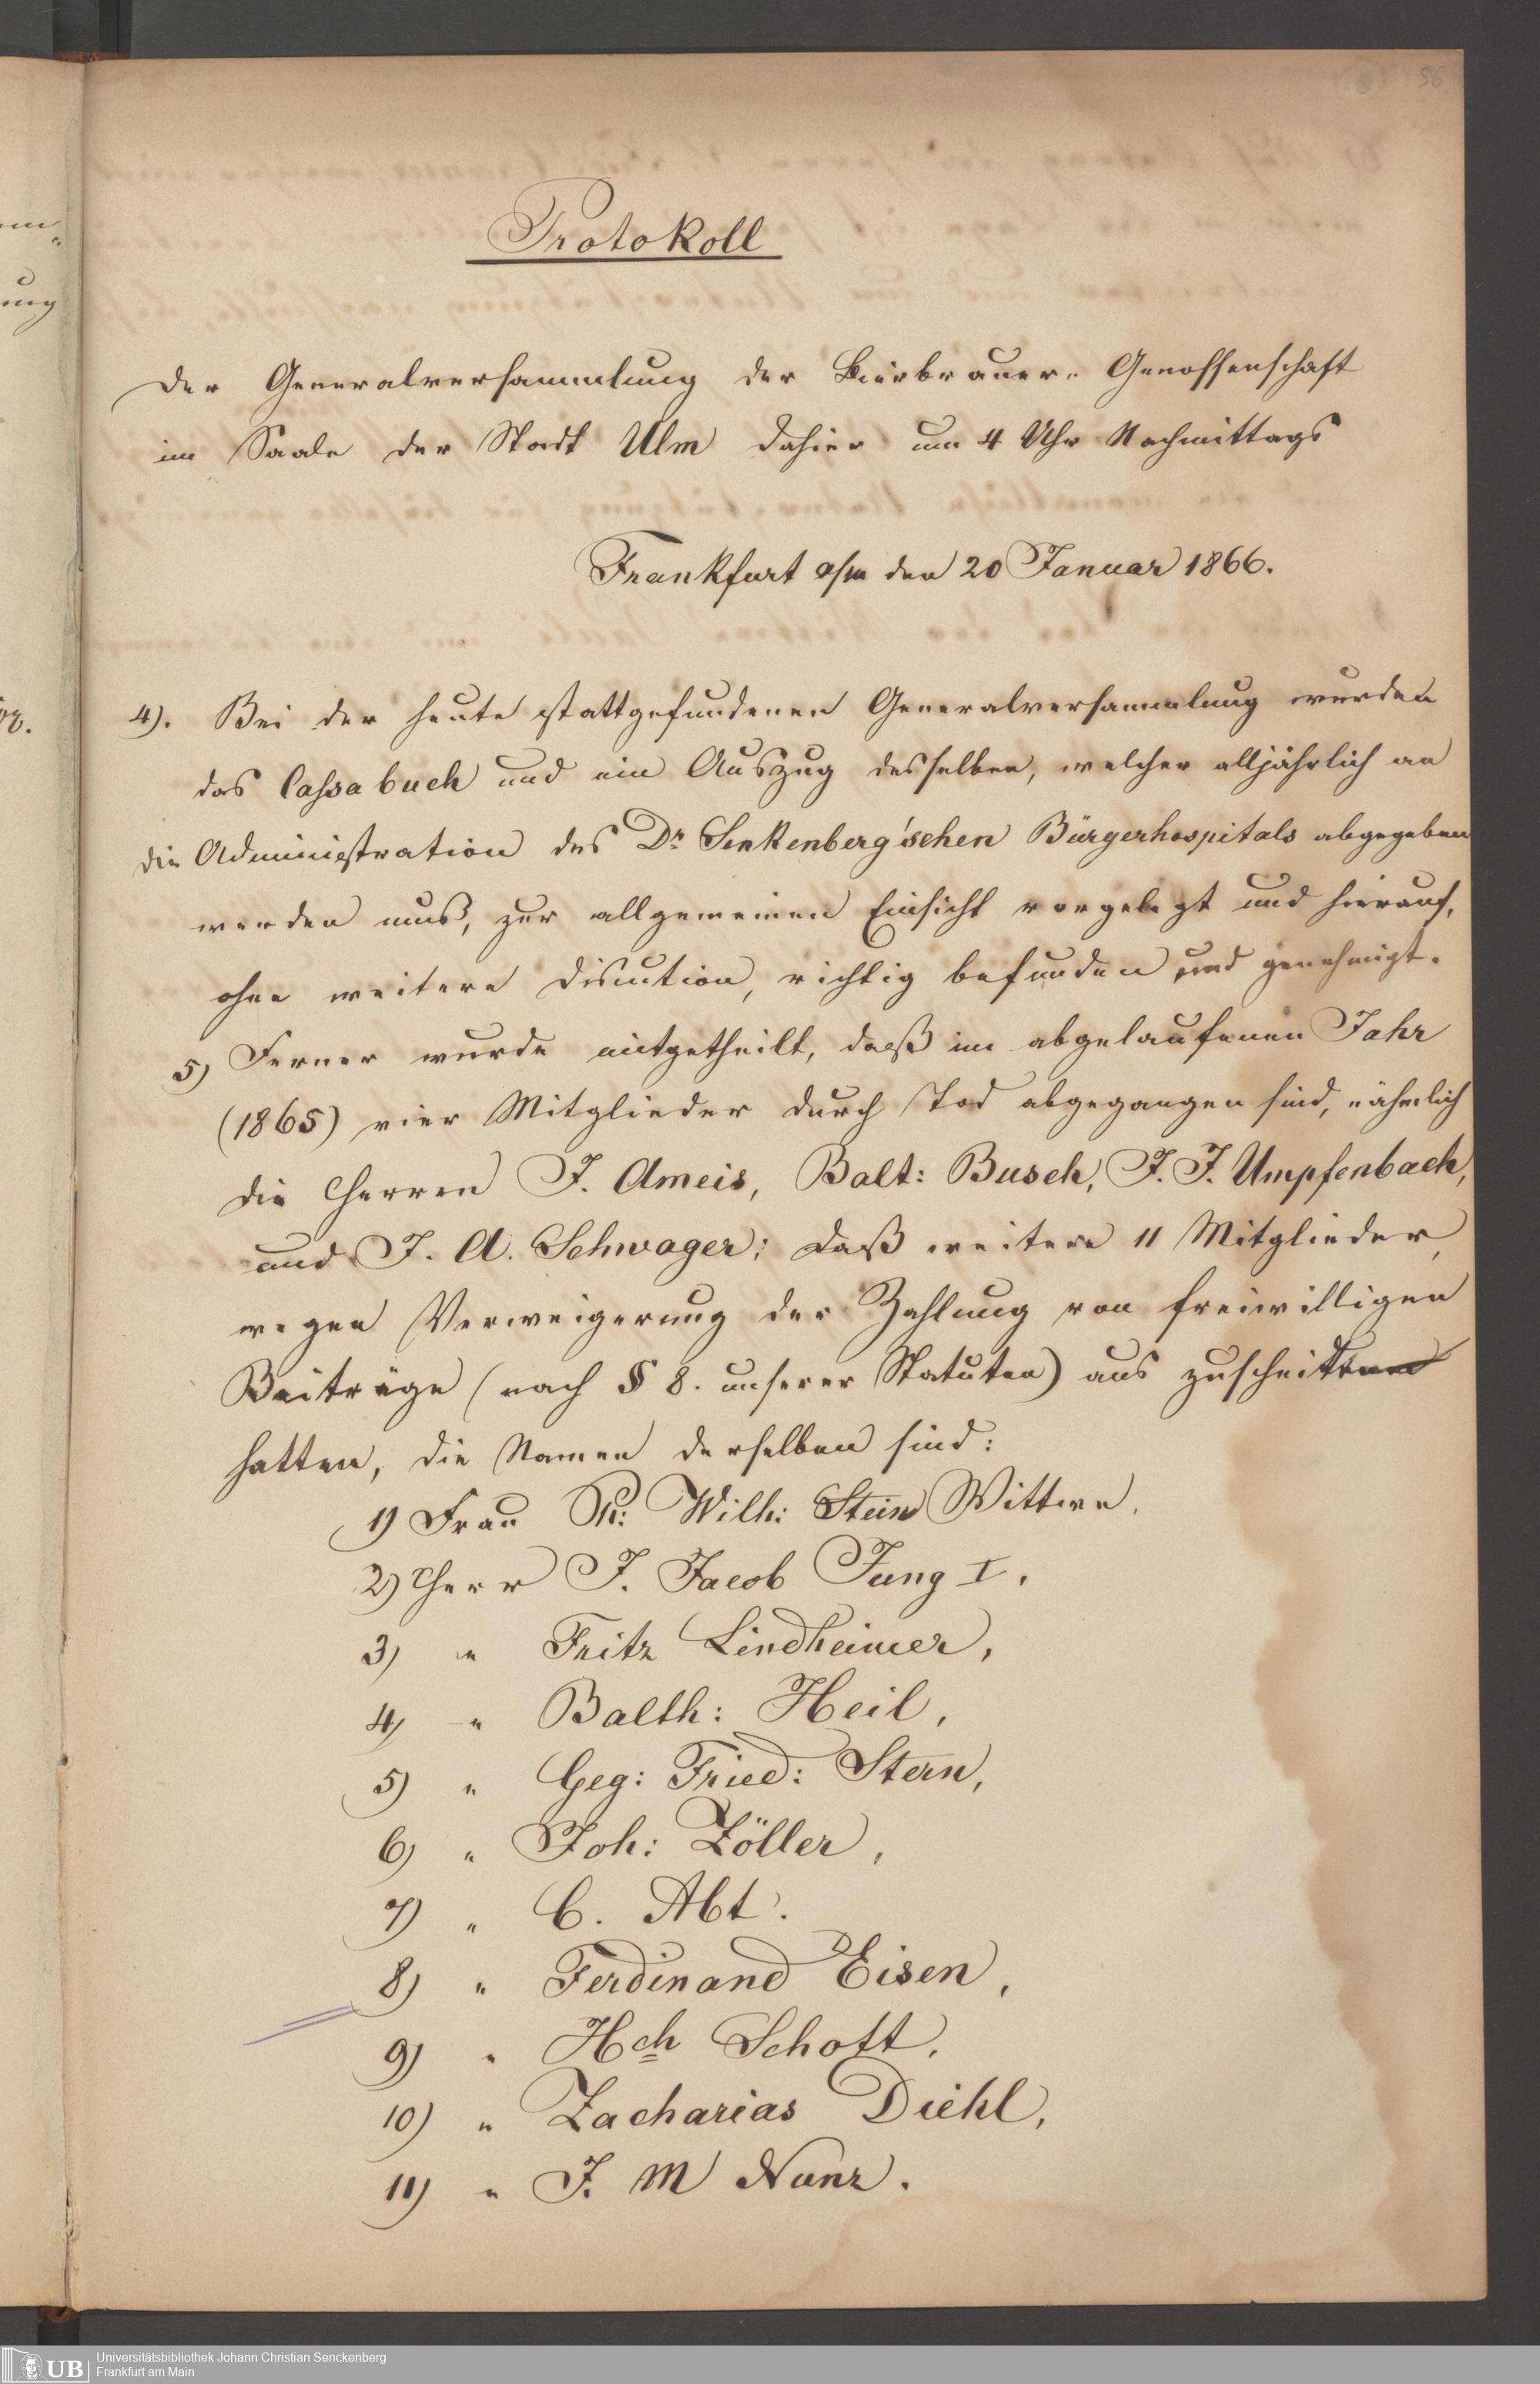 56
Protokoll
der Generalversammlung der Bierbrauer-Genossenschaft
im Saale der Stadt Ulm dahier um 4 Uhr Nachmittags
Frankfurt a/m den 20 Januar 1866.
4). Bei der heute stattgefundenen Generalversammlung wurden
das Cassabuch und ein Auszug desselben, welcher alljährlich an
die Administration des Dr Senkenberg'schen Bürgerhospitals abgegeben
werden muß, zur allgemeinen Einsicht vorgelegt und hierauf,
ohne weitere Discution, richtig befunden und genehmigt.
5) Ferner wurde mitgetheilt, daß im abgelaufenen Jahr
(1865) vier Mitglieder durch Tod abgegangen sind, nähmlich
die Herren J. Ameis, Balt: Busch, J. J. Umpfenbach,
und J. A. Schwager; daß weitere 11 Mitglieder,
wegen Verweigerung der Zahlung von freiwilligen
Beiträge (nach § 8. unserer Statuten) aus
hatten, die Namen derselben sind:
1) Frau Ph: Wilh: Stein Wittwe,
2) Herr J. Jacob Jung I,
3) " Fritz Lindheimer,
4) " Balth: Heil,
5) " Geg: Fried: Stern,
6) " Joh: Zöller,
7) " C. Abt.
8) " Ferdinand Eisen,
9) " Hch Schott,
10) " Zacharias Diehl,
11) " J. M Nunz.
ung
UB
Universitätsbibliothek Johann Christian Senckenberg
Frankfurt am Main